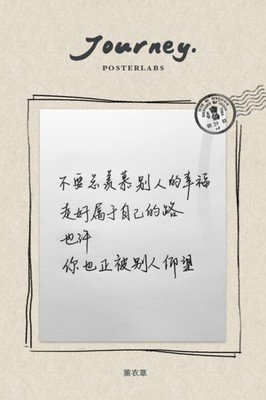 Journey.
POSTERLABS
不要总羡慕别人的幸福
走好属于自己的路
也许
你也正被别人仰望
薰衣草